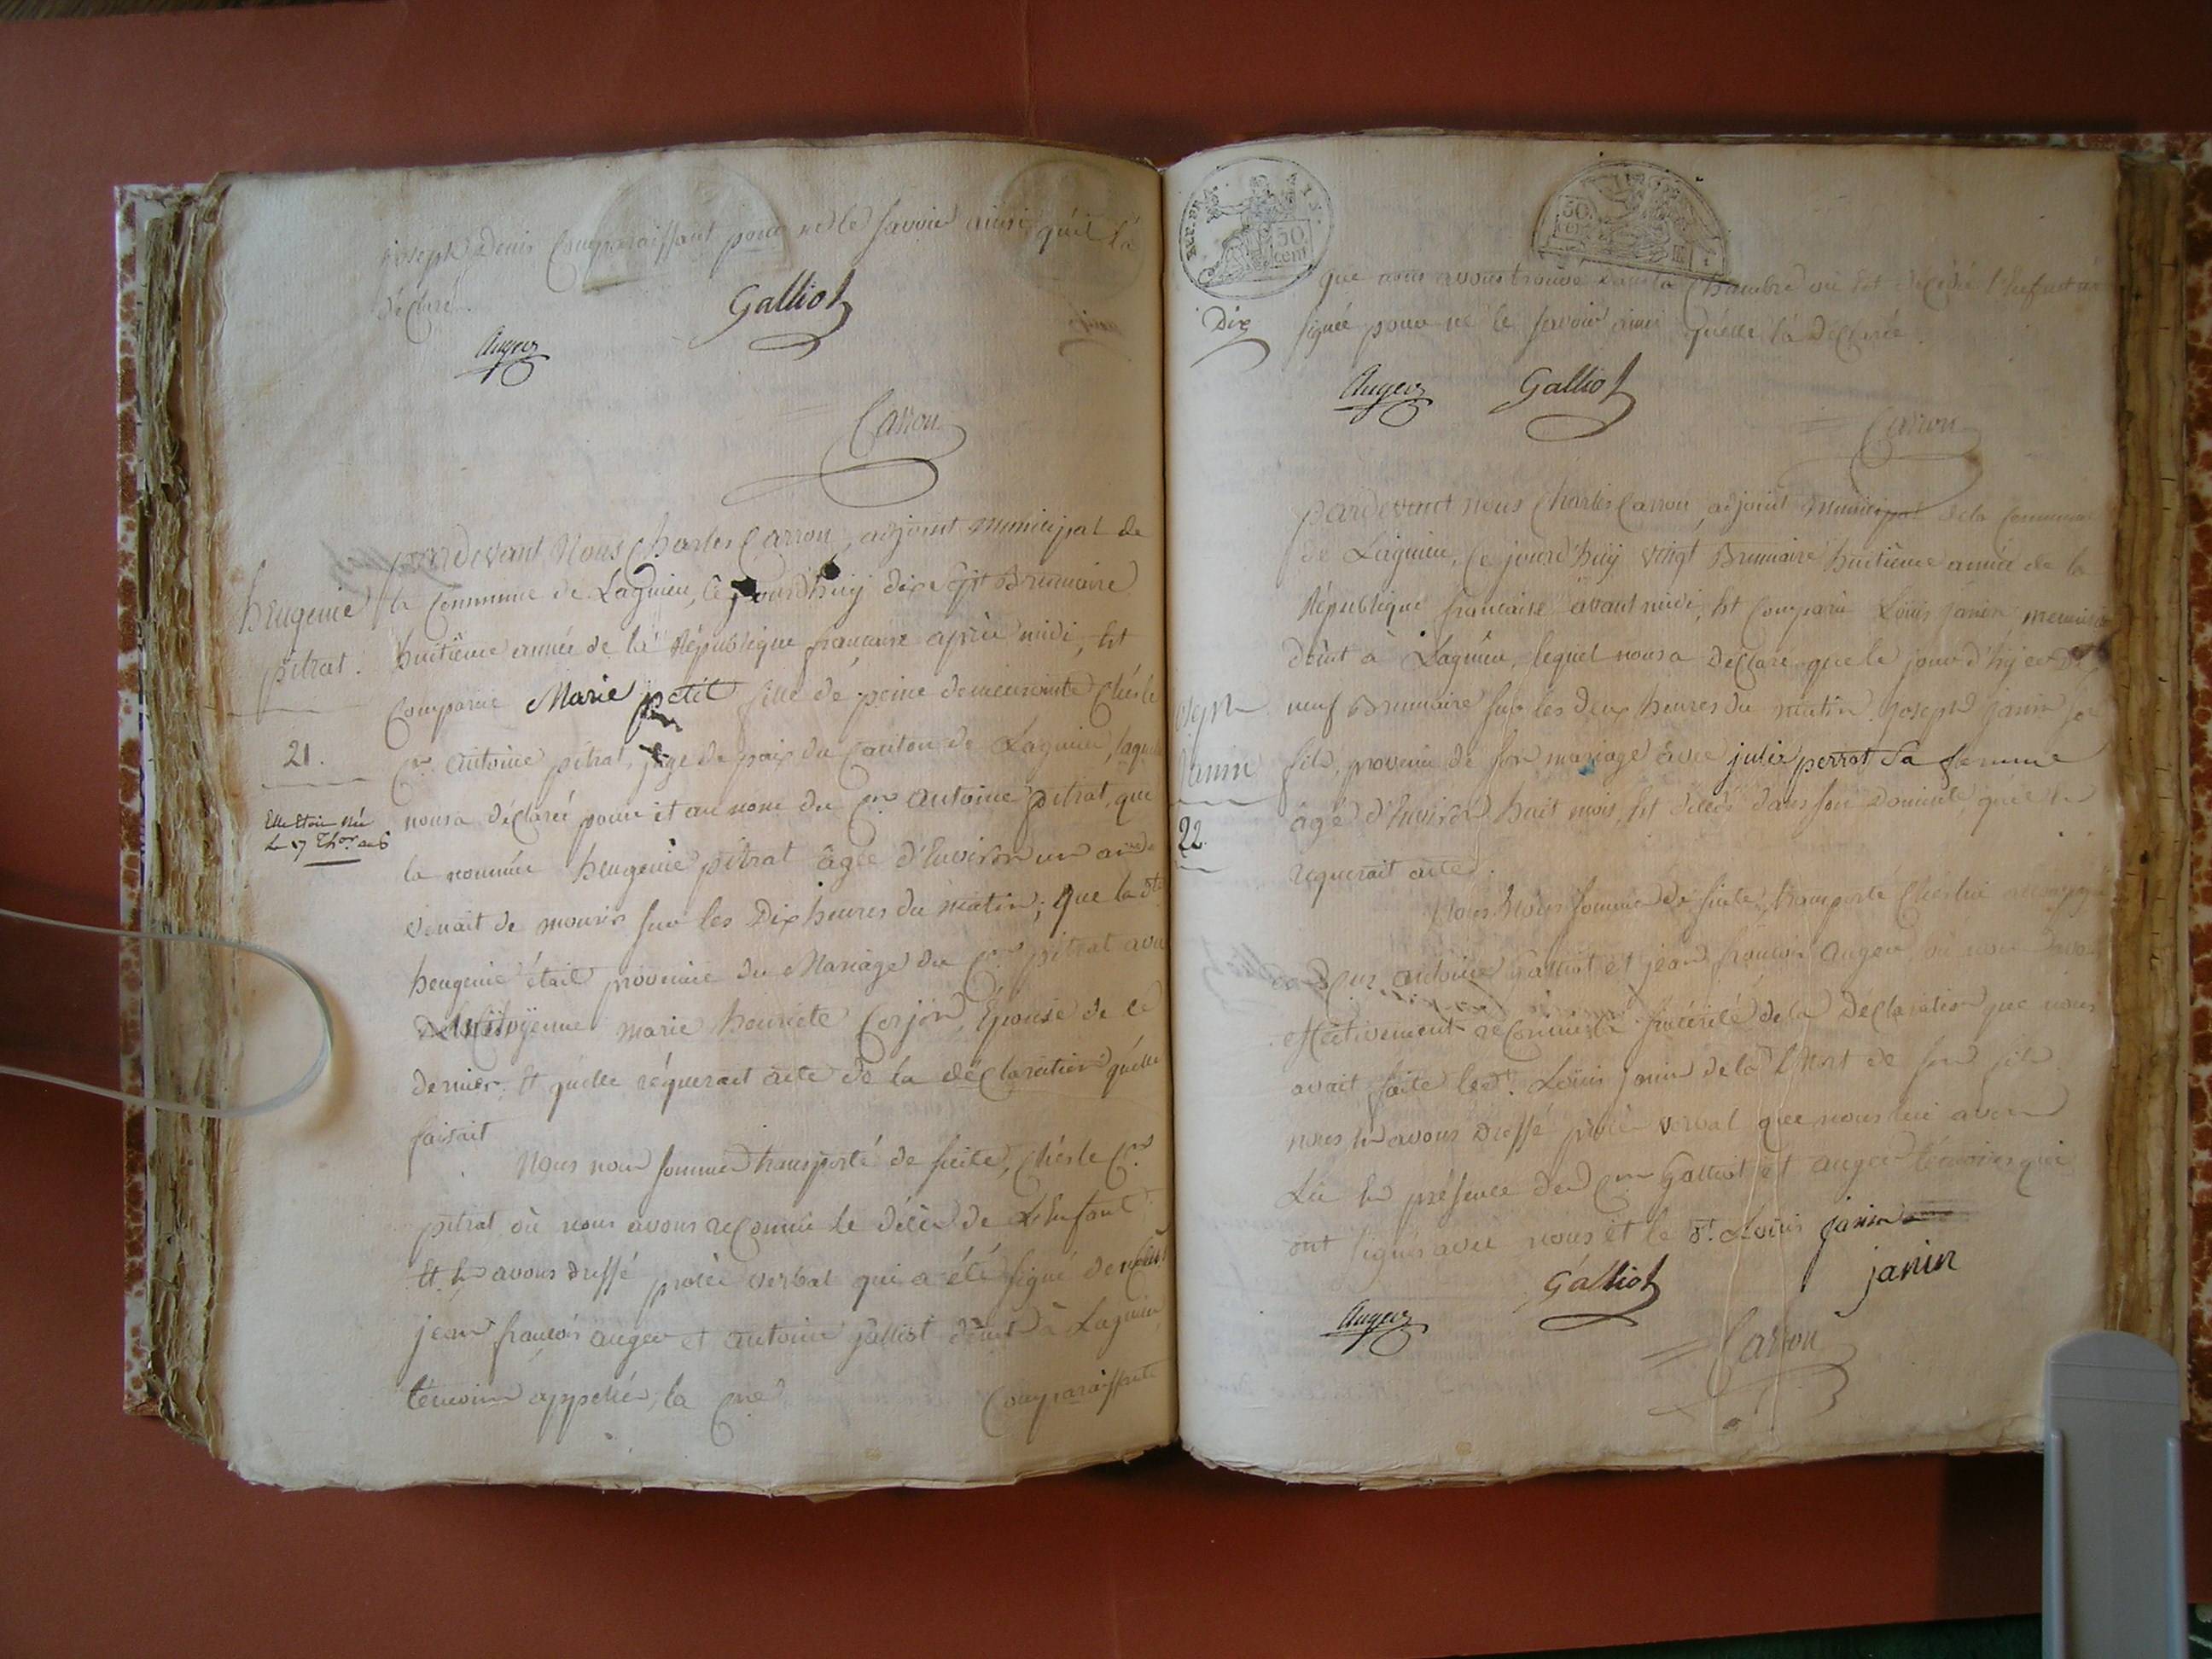 joseph Denis Comparaissant pour ne le savoir ainsi qu'il l'a
déclaré.
Galliot
Auger
Carron
heugenie
pitrat.
21.
Elle étoit née
le 17 Thor an 6
pardevant Nous Charles Carron, adjoint municipal de
la Commune de Lagnieu, Ce jourd'huy dix sept Brumaire
huitième année de la République francaise après midi, Est
Comparue Marie petit fille de peine demeurante Chés le
Cen. Antoine pitrat, juge de paix du Canton de Lagnieu, laquelle
nous a déclaré pour et au nom du Cen Antoine pitrat, que
la nommée heugenie pitrat âgée d'Environ un an
venait de mourir sur les Dix heures du matin; Que la dte
heugenie était provenue du Mariage du Cen pitrat avec
Citoÿenne marie henriete Corjon, Épouse de ce
dernier, Et quelle réquerait acte de la déclaration quelle
faisait
Nous nous sommes transporté de suite, Chés le Cen
pitrat où nous avons reconnu le décès de L'Enfant
Et En avons dressé procès verbal qui a été signé de nous
jean francois auger et antoine galliot demt à Lagnieu
témoins appellés, la Cne Comparaissante
REP. FRA.
50
cent
50
cen
Dix
que nous avons trouvé dans la Chambre où Est décédé l'Enfant
signée pour ne le savoir ainsi quelle l'a déclaré.
Auger
Galliot
Carron
joseph
Janin
22.
pardevant nous Charles Carron, adjoint municipal de la Commune
de Lagnieu, Ce jourd'huy vingt Brumaire huitième année de la
République francaise avant midi, Est Comparu Louis janin menuisier
demt à Lagnieu, lequel nous a déclaré que le jour d'hyer dix
neuf Brumaire sur les deux heures du matin joseph janin son
fils, provenu de son mariage avec julie perrot sa femme
âgé d'Environ huit mois, Est décédé dans son Domicile, qu'il En
réquerait acte.
Nous Nous sommes de suite transporté Chés lui
Cens antoine Galliot et jean francois Auger, où nous avons
effectivement reconnu la sincérité de la Déclaration que nous
avait faite le dt. Louis janin de la Mort de son fils
nous En avons dressé procès verbal que nous lui avons
Lu En présence des Cens Galliot et auger témoins qui
ont signés avec nous et le dt. Louis janin
janin
Galliot
Auger
Carron